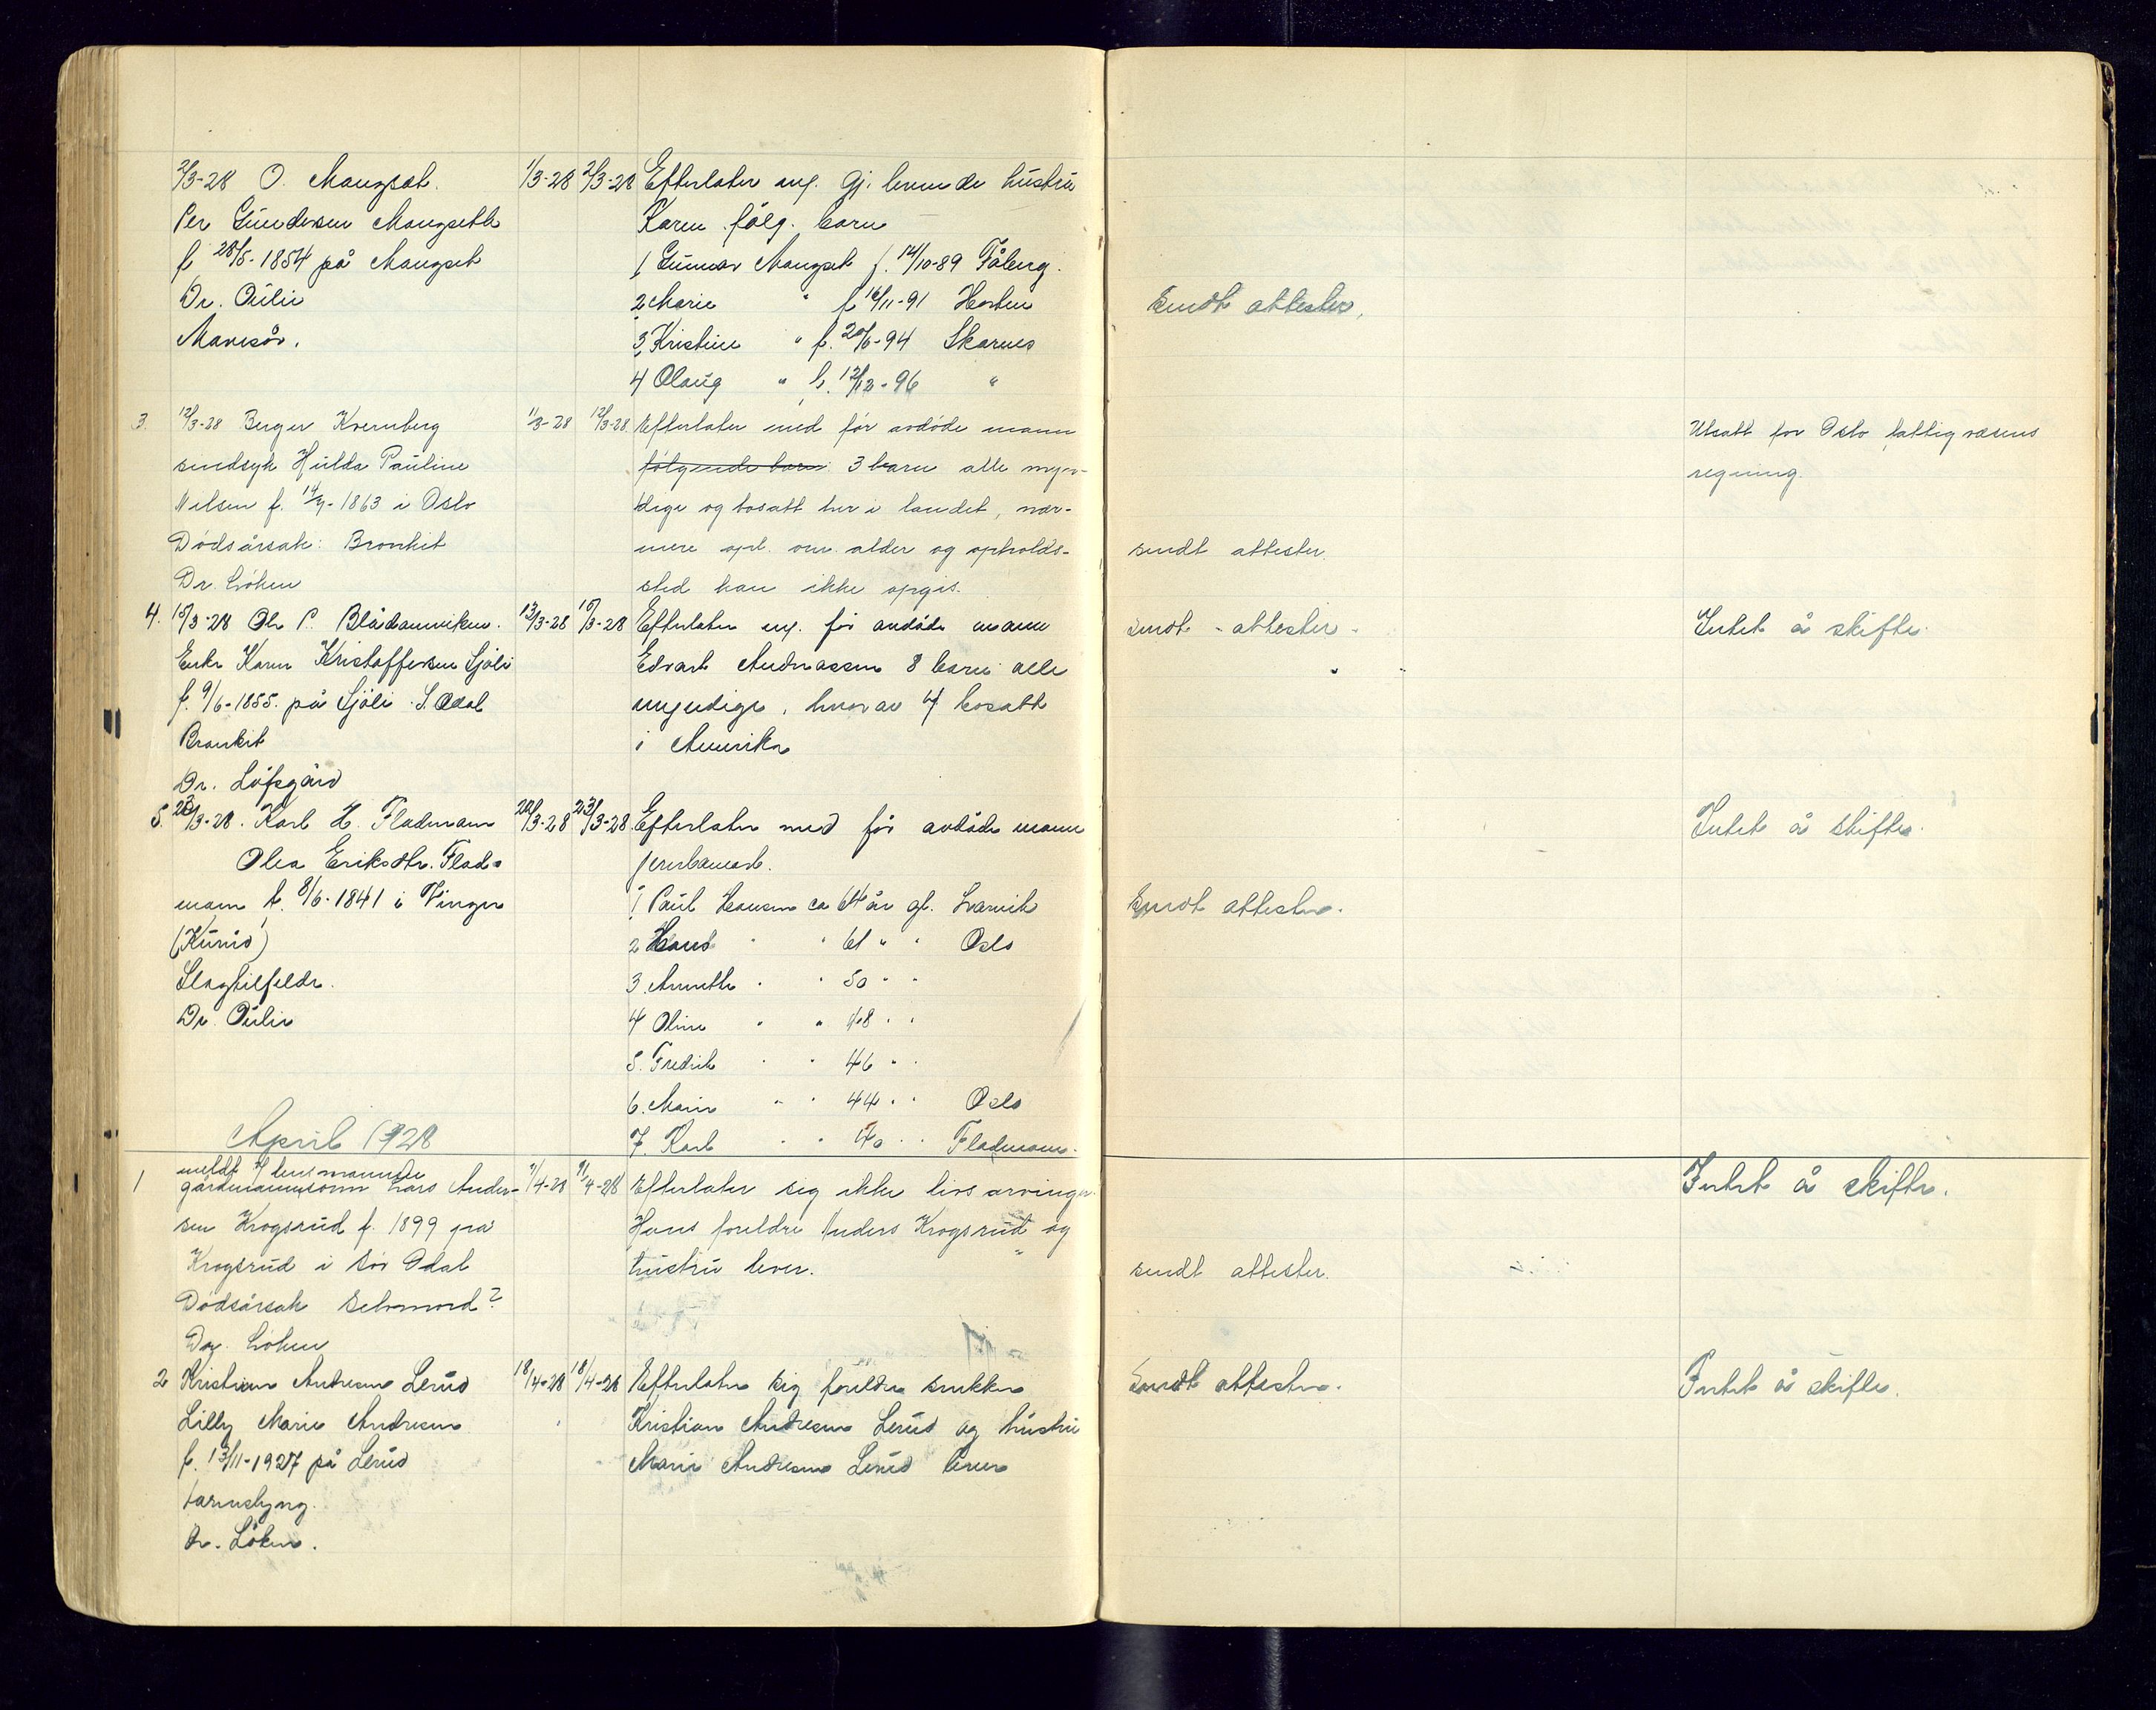 2/3-28 O. Mangset. 1/3-28 2/3-28 Efterlater sig. gj. levende hustru
Per Gundersen Mangseth Karen følg. barn
f 28/5-1854 på Mangset 1 Gunnar Mangset f. 14/10-89 Fåberg.
Dr. Oulie 2 Marie " f 16/11-91 Horten Sendt attester.
3 Kristine " f. 20/6-94 Skarnes
4 Olaug " f. 12/12-96 "
3. 12/3-28 Berger Kvernberg 11/3-28 12/3-28 Efterlater med før avdøde mann Utsatt for Oslo fattigvæsens
sindsyk Hulda Pauline følgende barn: 3 barn alle myn- regning.
Nilsen f. 14/9-1863 i Oslo dige og bosatt her i landet, nær-
Dødsårsak: Bronkit mere opl. om alder og opholds- sendt attester.
Dr. Løken sted kan ikke opgis.
4. 15/3-28 Ole P. Blådammiken. 13/3-28 15/3-28 Efterlater sig. før avdøde mann Sendt - attester - Intet å skifte.
Enke Karen Kristoffersen Sjøli Edvart Andreassen 8 barn alle
f. 9/6-1855. på Sjøli S. Odal myndige, hvorav 4 bosatt
Bronkit i Amerika
Dr. Løfsgård
5. 23/3-28. Karl H. Fladmann 20/3-28 23/3-28 Efterlater med før avdøde mann Intet å skifte.
Olea Eriksdtr. Flad-
mann f. 8/6-1841 i Vinger 1 Paul Hansen ca 64 år gl. Larvik Sendt attester.
(Kurud) 2 Hans " " 61 " " Oslo
Slagtilfelde. 3. Annethe " " 50 " "
Dr. Oulie 4 Oline " " 48 " "
5. Fredrik " " 46 " "
6. Marie " " 44 " " Oslo
April 1928 7. Karl " " 40 " " Fladmann.
1 meldt af lensmannen
gårdmannssønn Lars Ander- 9/4-28 9/4-28 Efterlater sig ikke livsarvinger. Intet å skifte.
sen Krogsrud f. 1899 på Hans foreldre Anders Krogsrud og
Krogsrud i Sør Odal hustru lever. sendt attester.
Dødsårsak selvmord?
Dr. Løken
2 Kristian Andresen Lerud 18/4-28 18/4-28 Efterlater sig foreldre Sendt attester. Intet å skifte.
Lilly Marie Andresen Kristian Andresen Lerud og hustru
f. 13/11-1927 på Lerud Marie Andresen Lerud lever
Dr. Løken.